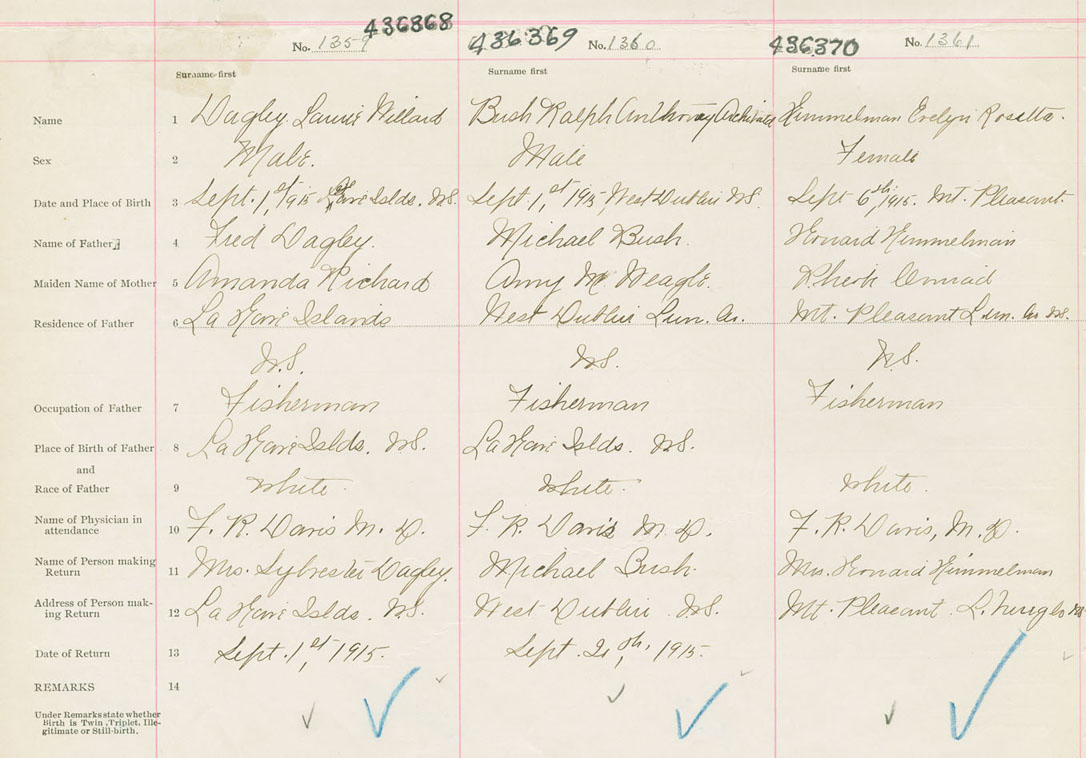 436368 436369 436370
No. 1359 No. 1360 No. 1361
Surname first Surname first Surname first
Name 1 Dagley Laurie Willard Bush Ralph Anthony Archibald Himmelman Evelyn Rosetta.
Sex 2 Male. Male Female
Date and Place of Birth 3 Sept. 1st, 1915 La Have Islds. N.S. Sept. 1st, 1915, West Dublin N.S. Sept 6th, 1915. Mt. Pleasant.
Name of Father 4 Fred Dagley. Michael Bush. Howard Himmelman
Maiden Name of Mother 5 Amanda Richard Amy Mc Neagle. Conrad
Residence of Father 6 La Have Islands West Dublin Lun. Co. Mt. Pleasant Lun. Co. N.S.
N.S. N.S. N.S.
Occupation of Father 7 Fisherman Fisherman Fisherman
Place of Birth of Father 8 La Have Islds. N.S. La Have Islds. N.S.
and
Race of Father 9 white. white. white.
Name of Physician in 10 F. R. Davis M. D. F. R. Davis M. D. F. R. Davis, M. D.
attendance
Name of Person making 11 Mrs. Sylvester Dagley. Michael Bush. Mrs. Howard Himmelman
Return
Address of Person mak- 12 La Have Islds. N.S. West Dublin. N.S. Mt. Pleasant.
ing Return
Date of Return 13 Sept. 1st, 1915. Sept. 1915.
REMARKS 14
Under Remarks state whether
Birth is Twin, Triplet, Ille-
gitimate or Still-birth.